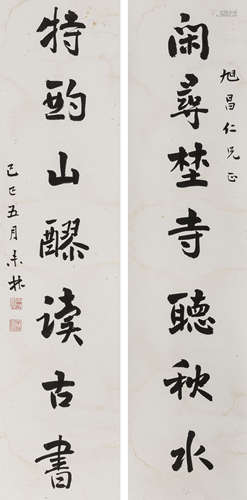 旭昌仁兄正
闲尋埜寺聽秋水
特酌山醪读古書
己巳五月景林